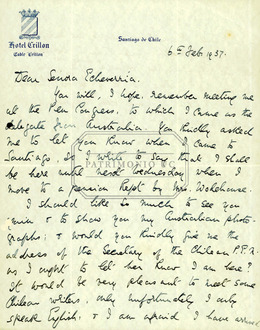 Hotel Crillon
Cable Crillon
Santiago de Chile
6th Feb. 1937.
Dear Senora Echeverria.
You will, I hope, remember meeting me
at the Pen Congress, to which I came as the
delegate from Australia. You kindly asked
me to let you know when I came to
Santiago. I write to say that I shall
be here until next Wednesday when I
move to a pension kept by Mrs. Wakehouse.
I should like so much to see you
again & to show you my Australian photo-
graphs: & would you kindly give me the
address of the Secretary of the Chilean P.E.N.
as I ought to let her know I am here?
It would be very pleasant to meet some
Chilean writers, only unfortunately I only
speak English: & I am afraid I have
PATRIMONIO